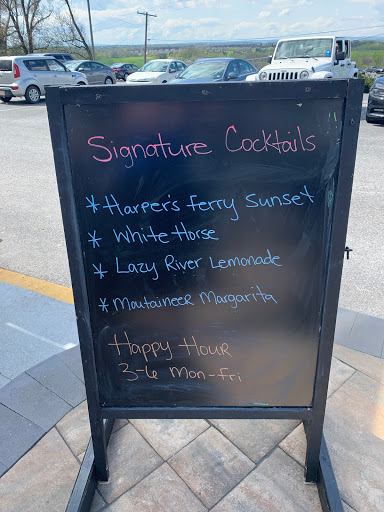 Signature Cocktails
* Harper's Ferry Sunset
* White Horse
* Lazy River Lemonade
* Moutaineer Margarita
Happy Hour
3-6 Mon-Fri